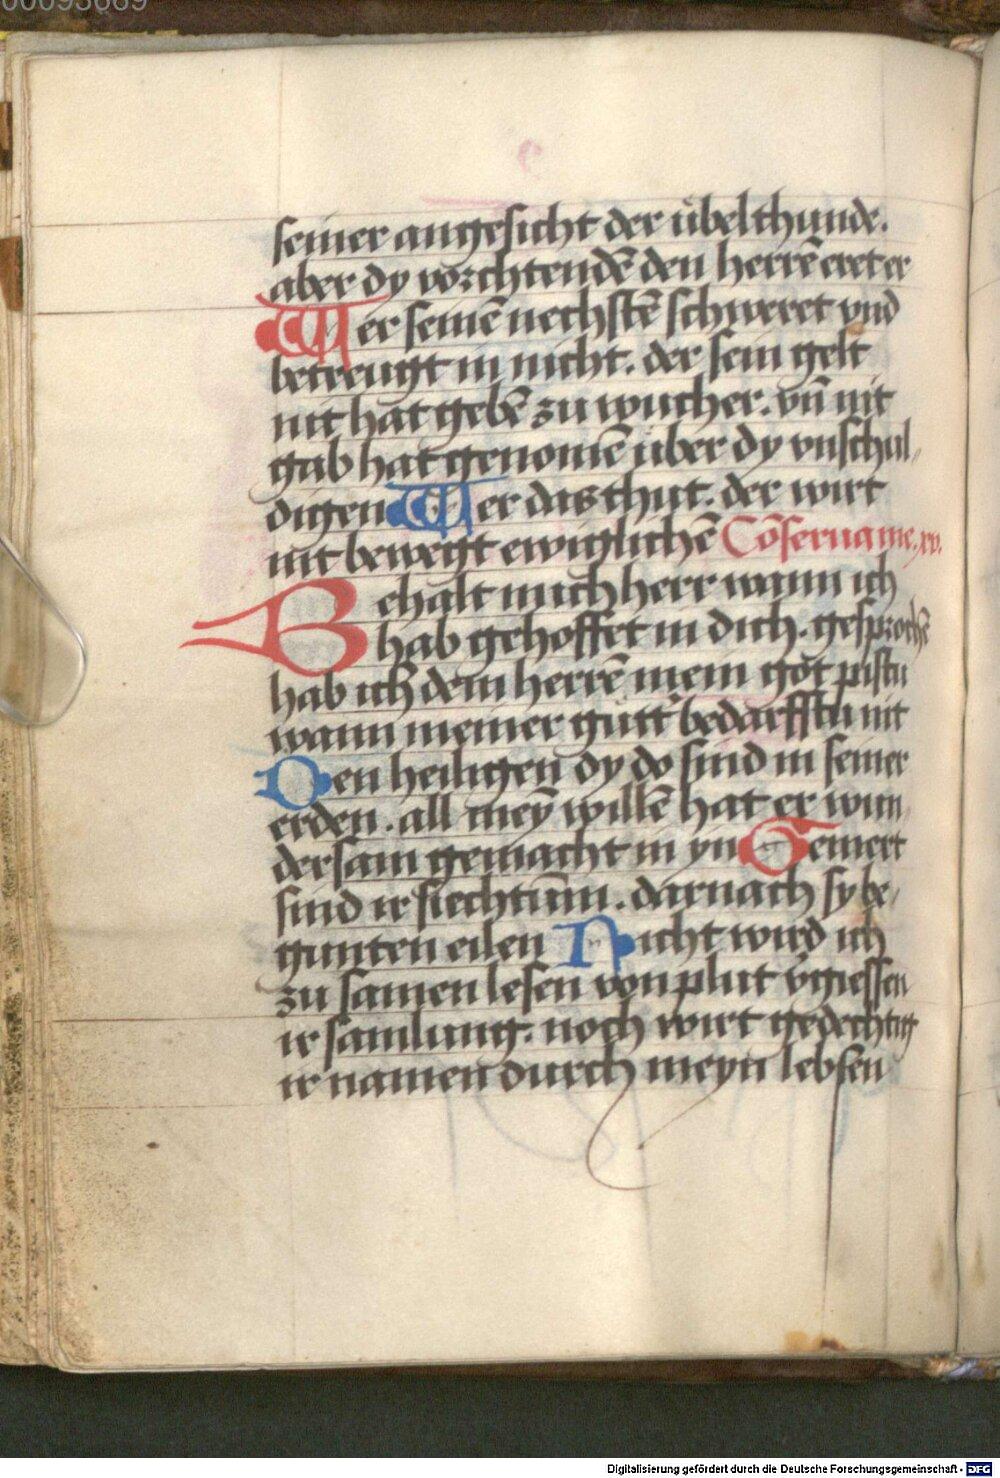 00093669
seiner angesicht der übelthunde.
aber dy vorchtendē den herrē eret er
Wer seinē nechstē schweret vnd
betreugt in nicht. der sein gelt
nit hat gebē zu wucher. vn̄ nit
gab hat genomē über dy vnschul-
digen Wer das thut. der wirt
nit bewegt ewiglichē Cōserua me. xv.
Behalt mich herr wann ich
hab gehoffet in dich. gesprochē
hab ich dem herrē mein got pistu
wann meiner gutt bedarfftu nit
Den heiligen dy do sind in seiner
erden. all meȳ willē hat er wun-
dersam gemacht in yn Gemert
sind ir siechtūm. darnach sy be-
gunten eilen Nicht wird ich
zu samen lesen von plut v̄giessen
ir samlung. noch wirt gedechtig
ir namen durch meyn lebsen
Digitalisierung gefördert durch die Deutsche Forschungsgemeinschaft - DFG